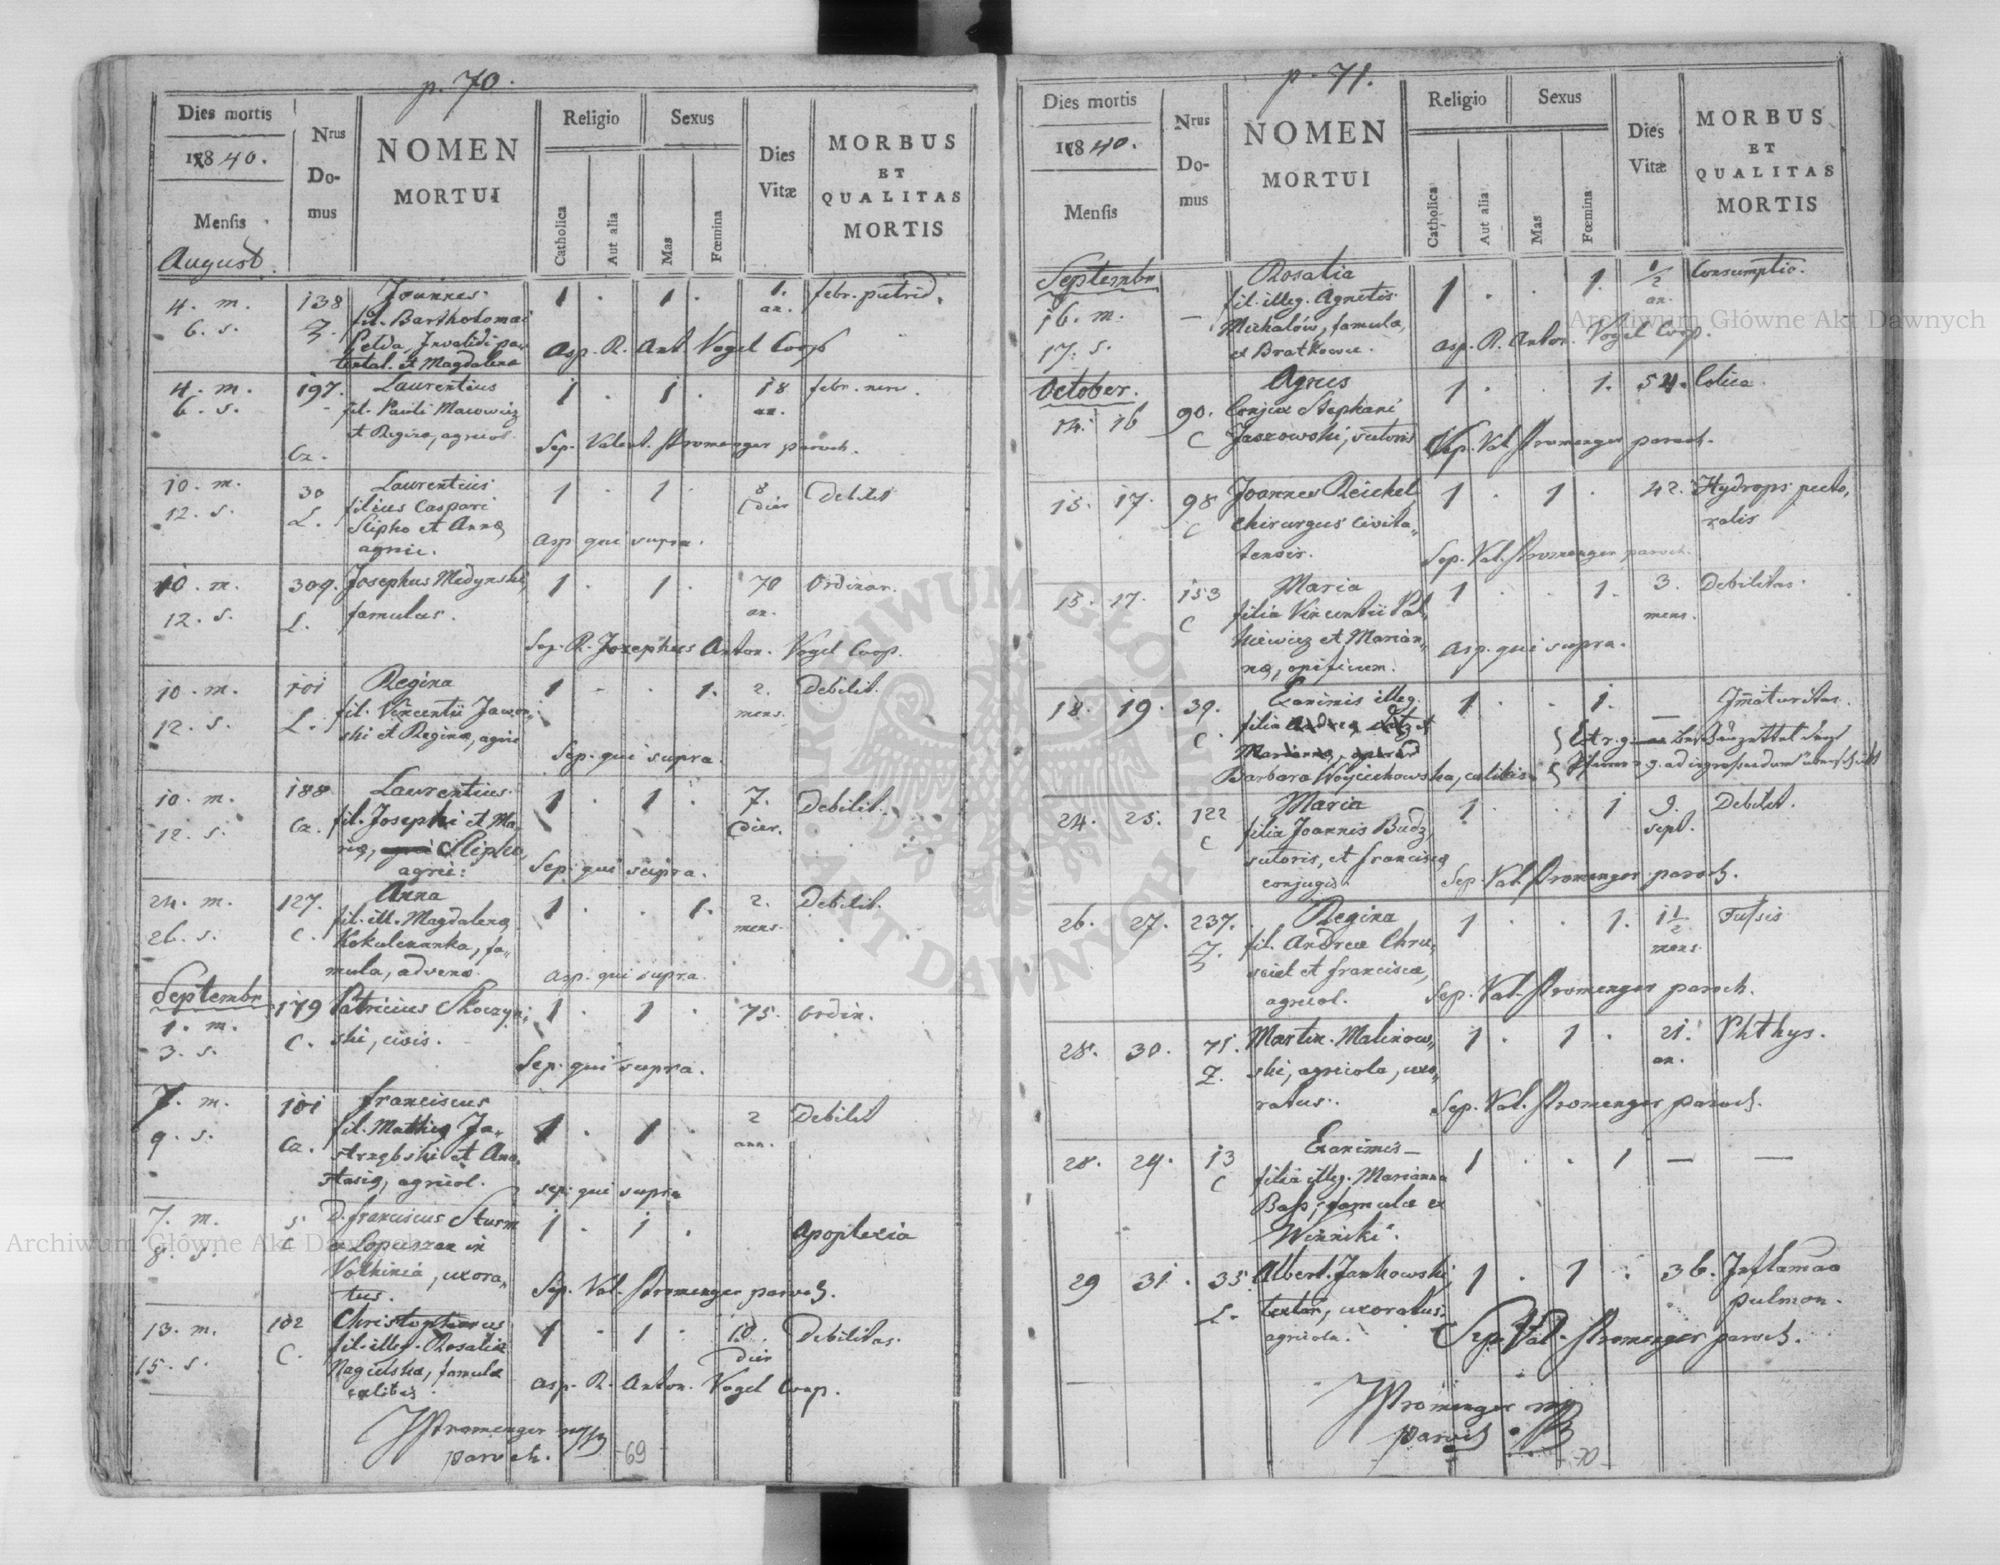 p. 70.
Dies mortis
1840.
Mensis
August
Nrus
Do-
mus
NOMEN
MORTUI
Religio
Catholica
Aut alia
Sexus
Mas
Fœmina
Dies
Vitæ
MORBUS
ET
QUALITAS
MORTIS
4. m. 138 Joannes 1 . 1 . 1. febr. putrid.
6. s. fil. Bartholomai an.
Felda, Invalidi pa-
tental. et Magdalena
Asp. R. Ant. Vogel Coop
4. m. 197. Laurentius 1 . 1 . 18 febr. nerv.
6. s. fil. Pauli Macowicz an.
Cz. et Regina, agricol.
Sep. Valent. Stromenger paroch.
10. m. 30 Laurentius 1 . 1 . 8 Debilit
12. s. L. filius Caspari dier
Slipko et Anna
agric.
asp. qui supra.
10. m. 309. Josephus Medynski, 1 . 1 . 70 Ordinar.
12. s. L. famulus. an.
Sep. R. Josephus Anton. Vogel Coop.
10. m. 101 Regina 1 - . 1. 2. Debilit.
12. s. L. fil. Vincentii Jawor- mens.
ski et Regina, agric
Sep. qui supra.
10. m. 188 Laurentius 1 . 1 . 7. Debilit.
12. s. Cz. fil. Josephi et Ma- dier.
ria, Slipko,
agric:
Sep. qui supra.
24. m. 127. Anna 1 . . 1. 2. Debilit.
26. s. C. fil. ill. Magdalena mens.
fa-
mula, advena.
asp. qui supra.
Septembr
1. m. 179 Patricius Skoczyn- 1 . 1 . 75. ordin.
3. s. C. ski, civis.
Sep. qui supra.
7. m. 181 Franciscus 1 . 1 . 2 Debilit
9. s. Cz. fil. Mathia Ja- ann.
strzębski et Ana-
stasia, agricol.
sep. qui supra
7. m. 5 D. Franciscus Sturm 1 . 1 . Apoplexia
8. s. C e Lopuszan in
Volhinia, uxora-
tus.
Sep. Val. Stromenger paroch.
13. m. 102 Christophorus 1 . 1 . 10. Debilitas.
15. s. C. fil. illeg. Rosalia dier
Nagielska, famula
calibis
asp. R. Anton. Vogel Coop.
Stromenger
paroch.
69
p. 71.
Dies mortis
1840.
Mensis
Nrus
Do-
mus
NOMEN
MORTUI
Religio
Catholica
Aut alia
Sexus
Mas
Fœmina
Dies
Vitæ
MORBUS
ET
QUALITAS
MORTIS
Septembr Rosalia 1 . . 1. 1/2 Consumptio.
16. m. - fil. illeg. Agnetis an.
17. s. Michalów, famula,
ex Bratkowce.
asp. R. Anton. Vogel Coop.
October. Agnes 1 . . 1. 54. Colica.
14. 16 90. Conjux Stephani
C Jaszowski, sutoris
Sep. Val. Stromenger paroch.
15. 17. 98 Joannes Reichel 1 . 1 . 42. Hydrops pecto-
C chirurgus civita- ralis
tensis.
Sep. Val. Stromenger paroch.
15. 17. 153 Maria 1 . . 1. 3. Debilitas.
C filia Vincentii Pal- mens.
niewicz et Marian-
na, opificum.
Asp. qui supra.
18. 19. 39. Exanimis illeg. 1 . . 1. — Immaturitas.
C. filia
Barbara Woyciechowska, calibis
24. 25. 122 Maria 1 . . 1 9. Debilit.
C filia Joannis Budz, sept.
sutoris, et Francisca
conjugis.
Sep. Val. Stromenger paroch.
26. 27. 237. Regina 1 . . 1. 1 1/2 Tussis
fil. Andrea Chru- mens
sciel et Francisca,
agricol.
Sep. Val. Stromenger paroch.
28. 30. 75. Martin. Malinow- 1 . 1 . 21. Phthys.
ski, agricola, uxo- an.
ratus.
Sep. Val. Stromenger paroch.
28. 29. 13 Exanimis — 1 . . 1 — —
C filia illeg. Marianna
Bass, famula ex
Winniki.
29 31. 35. Albert. Jankowski, 1 . 1 . 36. Inflamaō
L. textor, uxoratus. pulmon.
agricola.
Sep. Val. Stromenger paroch.
Stromenger
paroch
70
ARCHIWUM GŁÓWNE AKT DAWNYCH
Archiwum Główne Akt Dawnych
Archiwum Główne Akt Dawnych